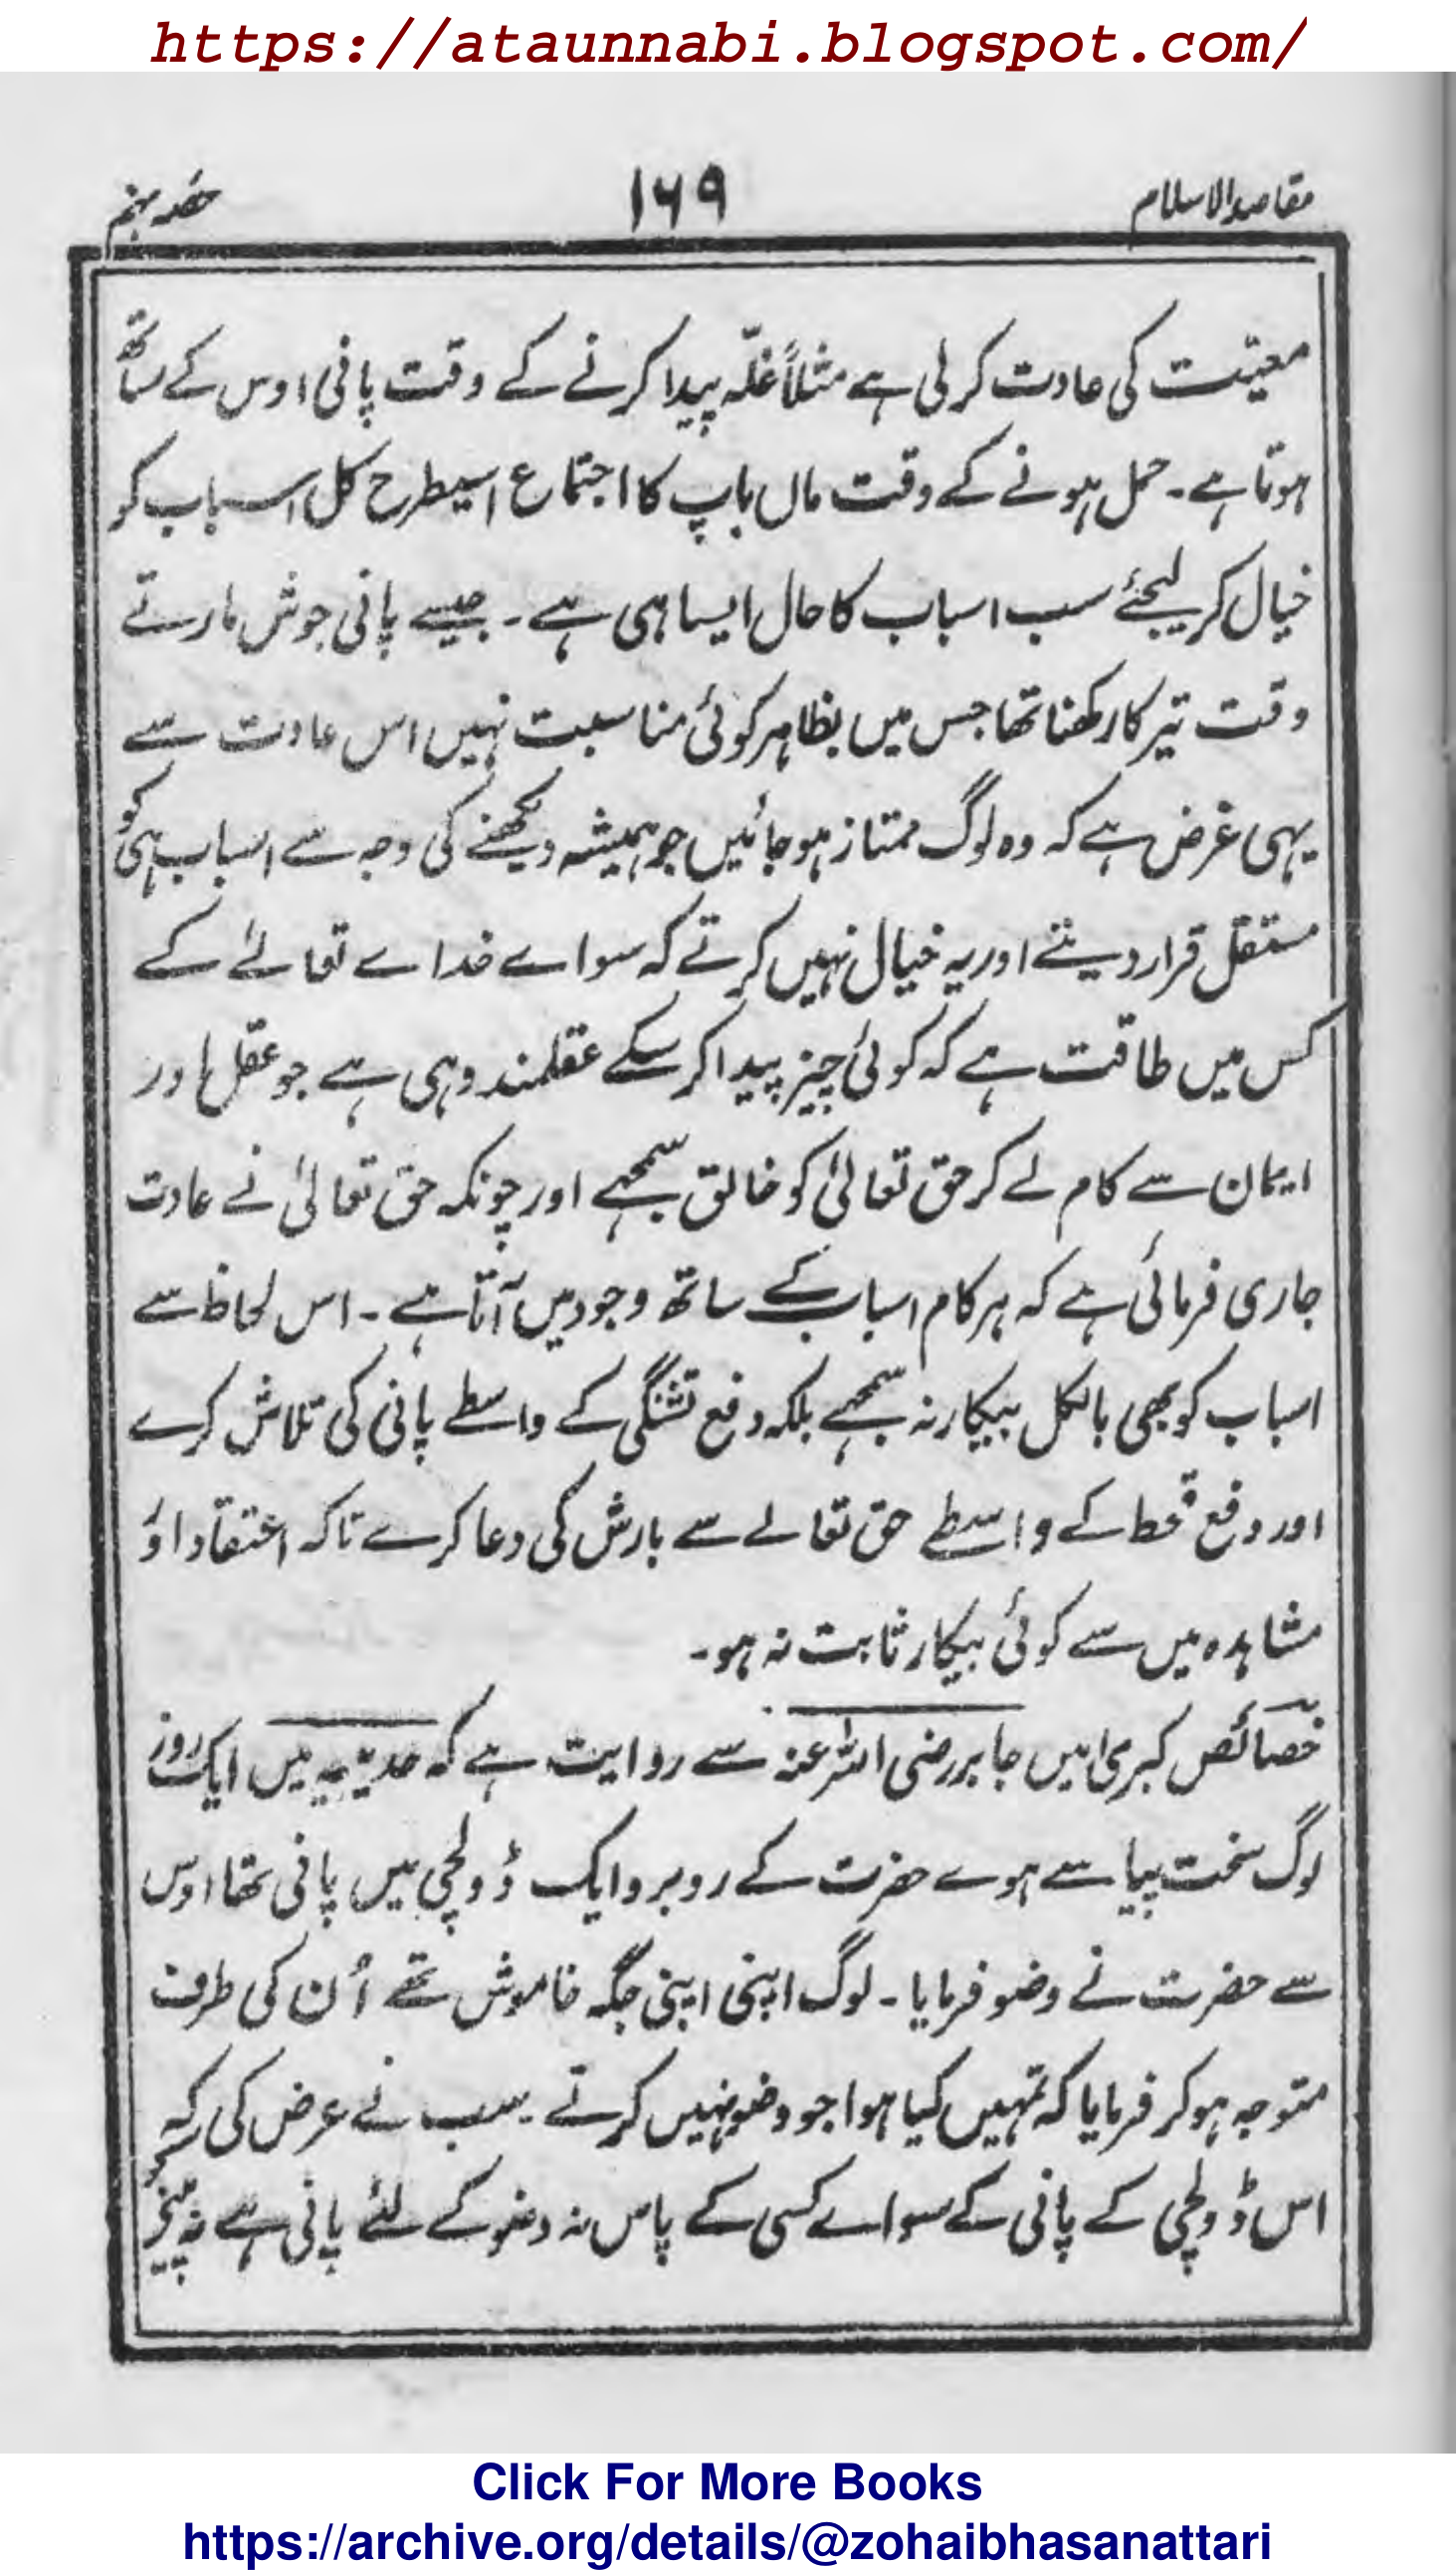 https://ataunnabi.blogspot.com/
مقاصد الاسلام ۱۶۹ حصہ نہم
معیّنت کی عادت کر لی ہے مثلاً غلّہ پیدا کرنے کے وقت پانی اوس کے ساتھ
ہوتا ہے ۔ حمل ہونے کے وقت ماں باپ کا اجتماع اسیطرح کل اسباب کو
خیال کر لیجئے سب اسباب کا حال ایسا ہی ہے ۔ جیسے پانی جوش مارتے
وقت تیر کا رکھنا تھا جس میں بظاہر کوئی مناسبت نہیں اس عادت سے
یہی غرض ہے کہ وہ لوگ ممتاز ہو جائیں جو ہمیشہ دیکھنے کی وجہ سے اسباب ہی کو
مستقل قرار دیتے اور یہ خیال نہیں کرتے کہ سواے خداے تعالےٰ کے
کس میں طاقت ہے کہ کوئی چیز پیدا کر سکے عقلمند وہی ہے جو عقل اور
ایمان سے کام لے کر حق تعالیٰ کو خالق سمجھے اور چونکہ حق تعالیٰ نے عادت
جاری فرمائی ہے کہ ہر کام اسباب کے ساتھ وجود میں آتا ہے ۔ اس لحاظ سے
اسباب کو بھی بالکل بیکار نہ سمجھے بلکہ دفع تشنگی کے واسطے پانی کی تلاش کرے
اور دفع قحط کے واسطے حق تعالے سے بارش کی دعا کرے تاکہ اعتقاد اور
مشاہدہ میں سے کوئی بیکار ثابت نہ ہو ۔
خصائص کبریٰ میں جابر رضی اللہ عنہ سے روایت ہے کہ حدیبیہ میں ایک روز
لوگ سخت پیاسے ہوے حضرت کے روبرو ایک ڈولچی میں پانی تھا اوس
سے حضرت نے وضو فرمایا ۔ لوگ اپنی اپنی جگہ خاموش تھے اُن کی طرف
متوجہ ہو کر فرمایا کہ تمہیں کیا ہوا جو وضو نہیں کرتے ۔ سب نے عرض کی کہ
اس ڈولچی کے پانی کے سواے کسی کے پاس نہ وضو کے لئے پانی ہے نہ پینے کو
Click For More Books
https://archive.org/details/@zohaibhasanattari